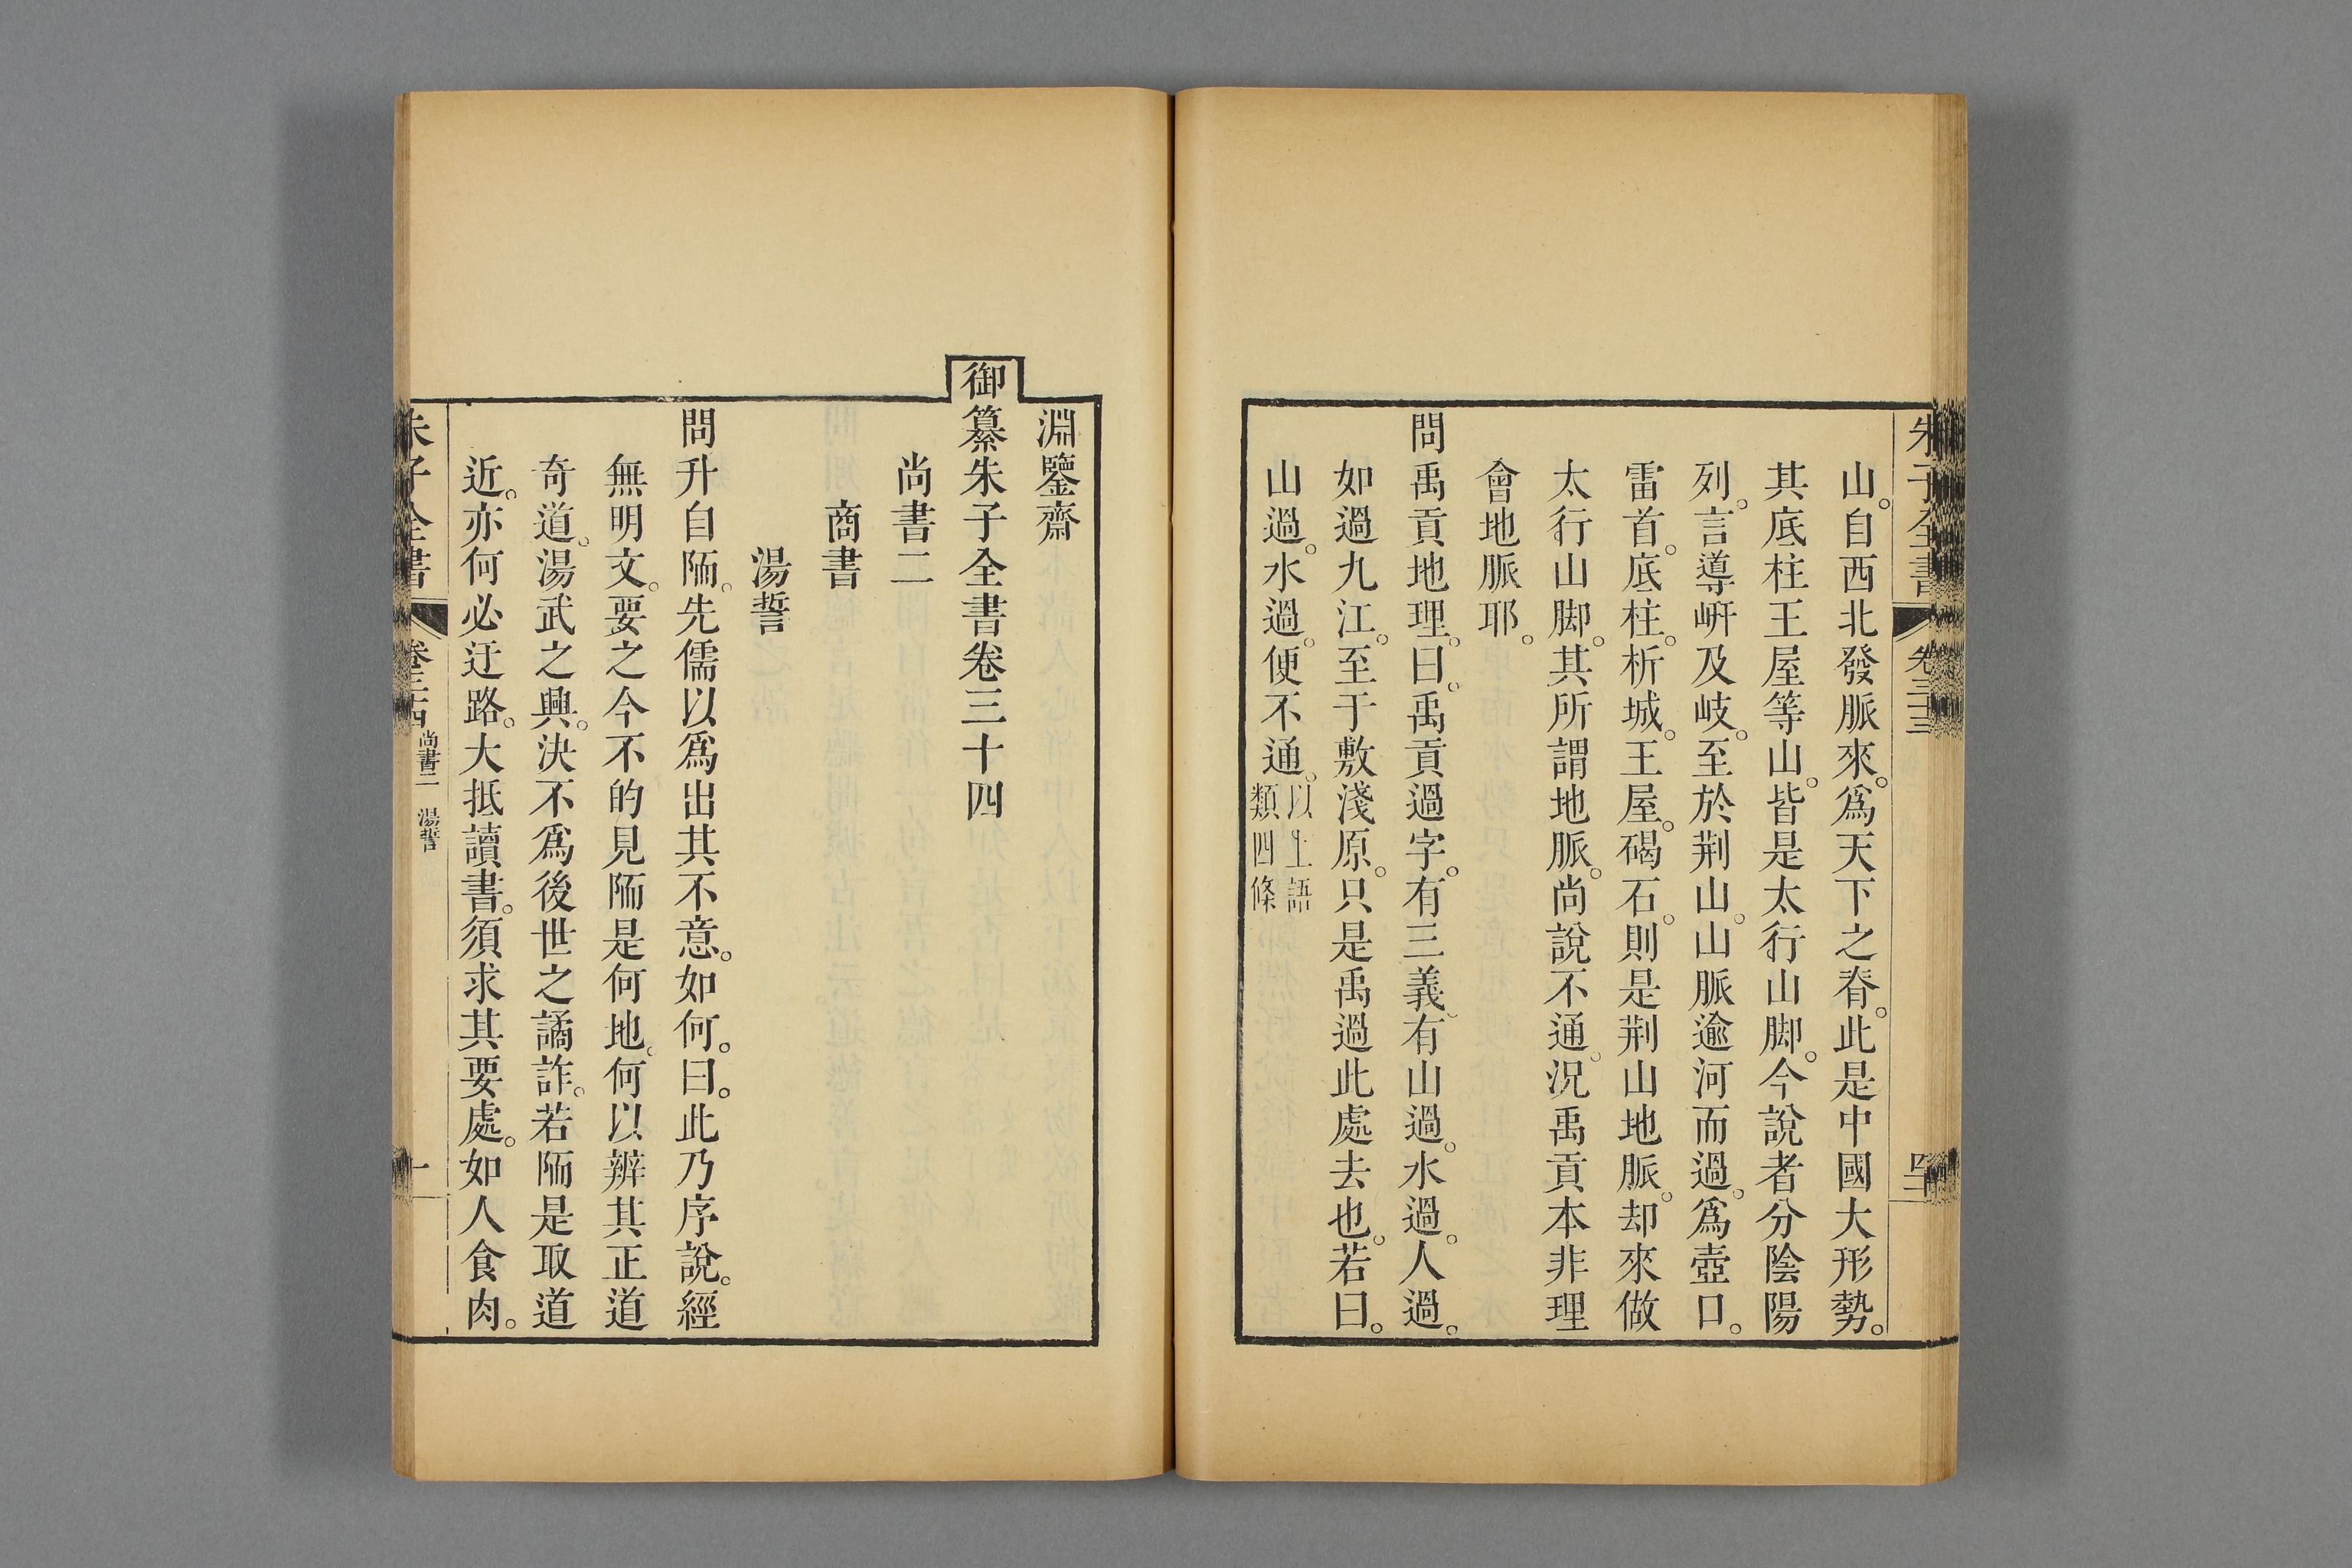 朱子全書 卷三十三
山。自西北發脈來。爲天下之脊。此是中國大形勢。
其底柱王屋等山。皆是太行山脚。今說者分陰陽
列。言導岍及岐。至於荆山。山脈逾河而過。爲壺口。
雷首。底柱。析城。王屋。碣石。則是荆山地脈。却來做
太行山脚。其所謂地脈。尚說不通。況禹貢本非理
會地脈耶。
問禹貢地理。曰。禹貢過字。有三義。有山過。水過。人過。
如過九江。至于敷淺原。只是禹過此處去也。若曰。
山過。水過。便不通。以上語
類四條
淵鑒齋
御纂朱子全書卷三十四
尚書二
商書
湯誓
問升自陑。先儒以爲出其不意。如何。曰。此乃序說。經
無明文。要之今不的見陑是何地。何以辨其正道
奇道。湯武之興。決不爲後世之譎詐。若陑是取道
近。亦何必迂路。大抵讀書。須求其要處。如人食肉。
朱子全書 卷三十四 尚書二 湯誓 一